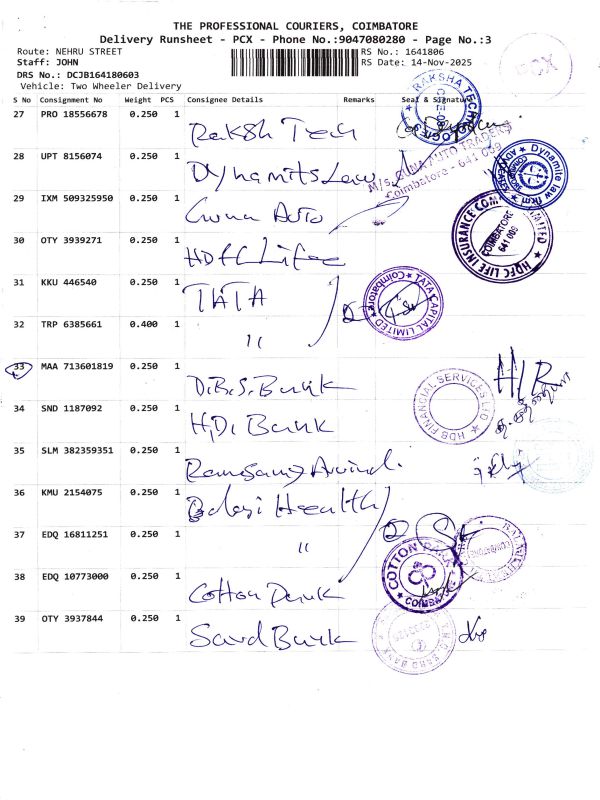 THE PROFESSIONAL COURIERS, COIMBATORE
Delivery Runsheet - PCX - Phone No.:9047080280 - Page No.:3
Route: NEHRU STREET RS No.: 1641806
Staff: JOHN RS Date: 14-Nov-2025
DRS No.: DCJB164180603
Vehicle: Two Wheeler Delivery
PCX
S No Consignment No Weight PCS Consignee Details Remarks Seal & Signature
27 PRO 18556678 0.250 1 Raksh Tech
RAKSHA TECH
28 UPT 8156074 0.250 1 Dynamits Law
M/s. GUNA AUTO TRADERS
Coimbatore - 641 009
Dynamite law firm
29 IXM 509325950 0.250 1 Guna Auto
HDFC LIFE INSURANCE COM LIMITED
COIMBATORE
641 009
30 OTY 3939271 0.250 1 HDFC Life
31 KKU 446540 0.250 1 TATA
TATA CAPITAL LIMITED
Coimbatore
32 TRP 6385661 0.400 1 "
33 MAA 713601819 0.250 1 D.B.S. Bank
H/R
HDB FINANCIAL SERVICES LTD
34 SND 1187092 0.250 1 H.D. Bank
35 SLM 382359351 0.250 1 Arvind.
36 KMU 2154075 0.250 1 Health
37 EDQ 16811251 0.250 1 "
38 EDQ 10773000 0.250 1 Cotton
COTTON
COIMBATORE
39 OTY 3937844 0.250 1 Bank